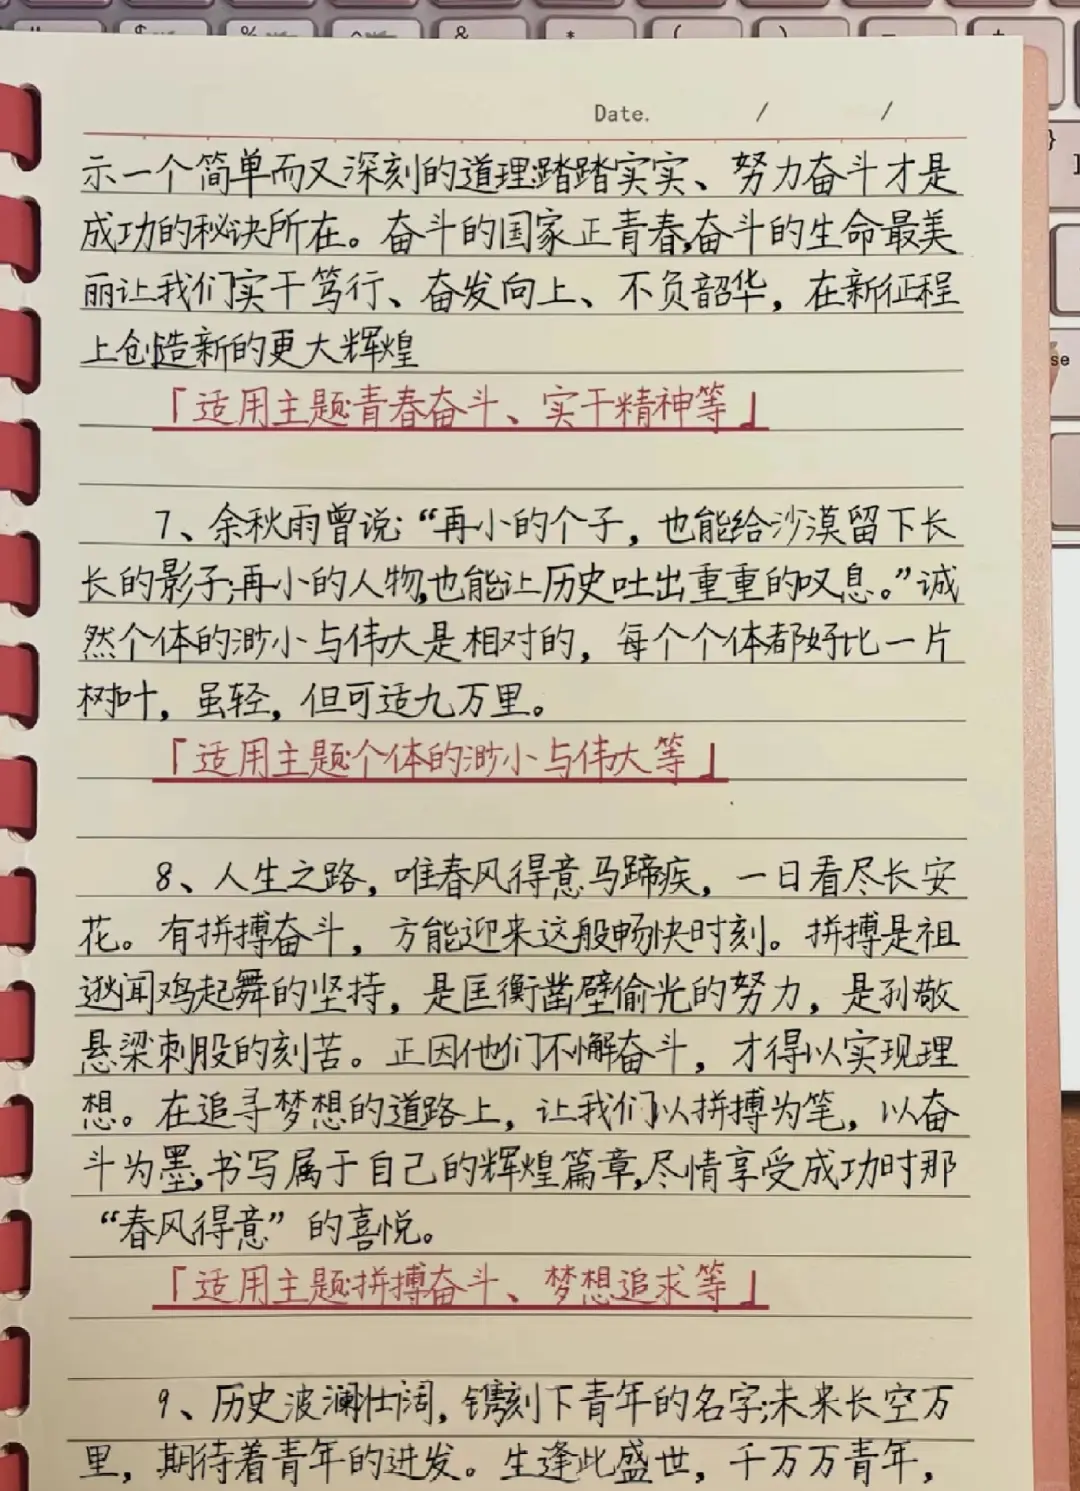 Date. / /
示一个简单而又深刻的道理:踏踏实实、努力奋斗才是
成功的秘诀所在。奋斗的国家正青春,奋斗的生命最美
丽让我们实干笃行、奋发向上、不负韶华，在新征程
上创造新的更大辉煌
「适用主题:青春奋斗、实干精神等」
7、余秋雨曾说:“再小的个子，也能给沙漠留下长
长的影子;再小的人物,也能让历史吐出重重的叹息。”诚
然个体的渺小与伟大是相对的，每个个体都好比一片
树叶，虽轻，但可适九万里。
「适用主题:个体的渺小与伟大等」
8、人生之路，唯春风得意马蹄疾，一日看尽长安
花。有拼搏奋斗，方能迎来这般畅快时刻。拼搏是祖
逖闻鸡起舞的坚持，是匡衡凿壁偷光的努力，是孙敬
悬梁刺股的刻苦。正因他们不懈奋斗，才得以实现理
想。在追寻梦想的道路上，让我们以拼搏为笔，以奋
斗为墨,书写属于自己的辉煌篇章,尽情享受成功时那
“春风得意”的喜悦。
「适用主题:拼搏奋斗、梦想追求等」
9、历史波澜壮阔，镌刻下青年的名字;未来长空万
里，期待着青年的进发。生逢此盛世，千万万青年，